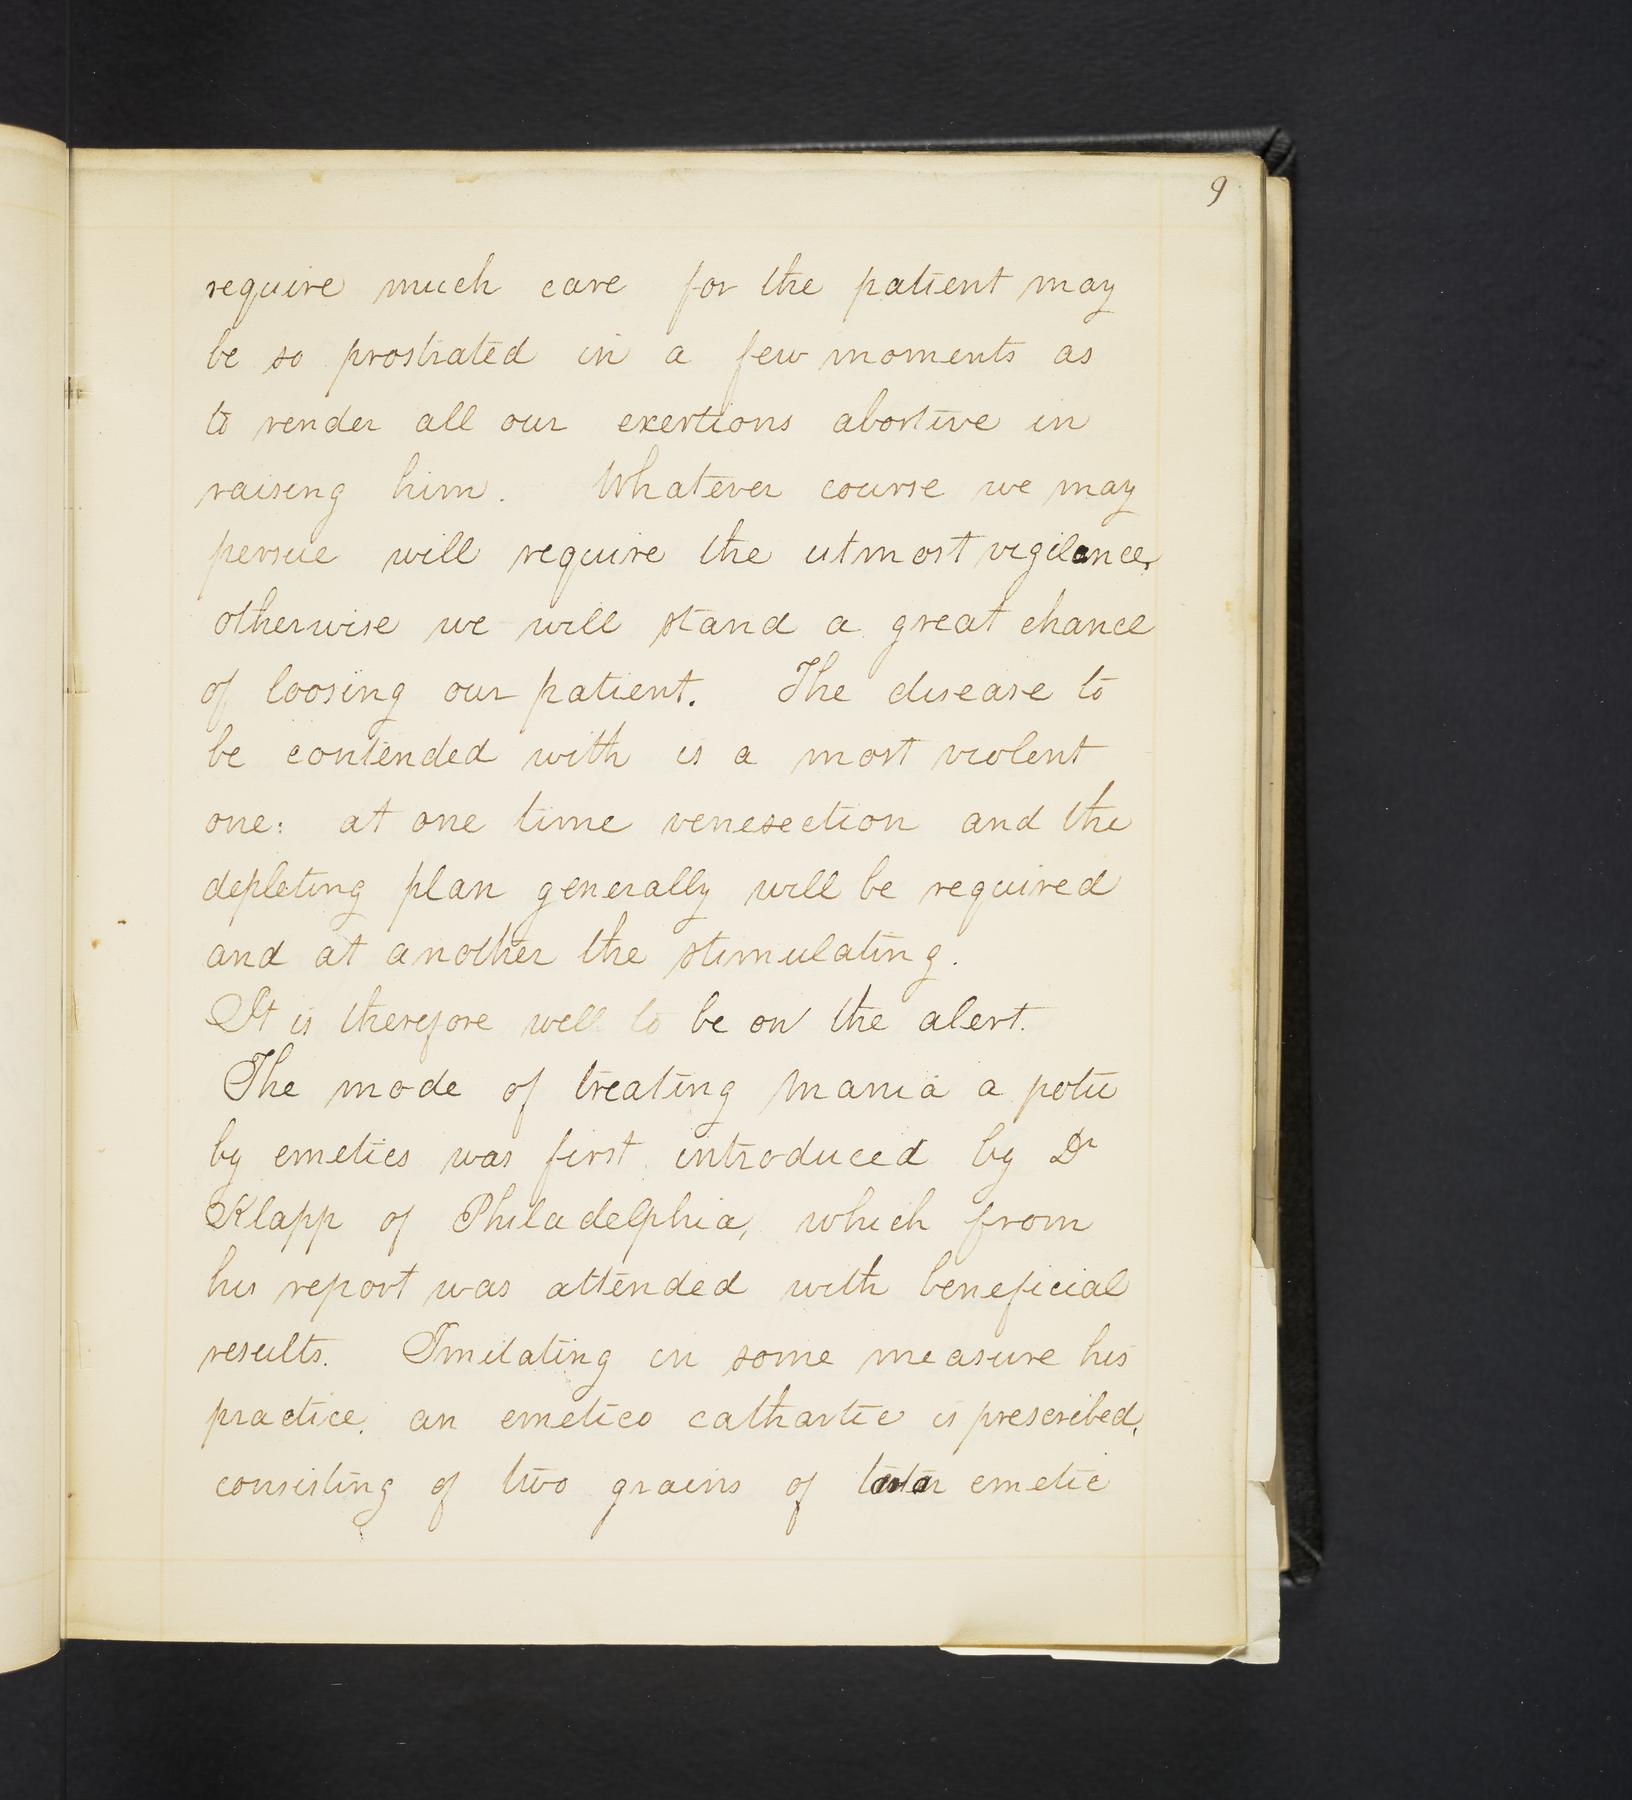 9
require much care for the patient may
be so prostrated in a few moments as
to render all our exertions abortive in
raising him. Whatever course we may
persue will require the utmost vigilance,
otherwise we will stand a great chance
of loosing our patient. The disease to
be contended with is a most violent
one: at one time venesection and the
depleting plan generally will be required
and at another the stimulating.
It is therefore well to be on the alert.
The mode of treating mania a potu
by emetics was first introduced by Dr
Klapp of Philadelphia, which from
his report was attended with beneficial
results. Imitating in some measure his
practice, an emetico cathartic is prescribed,
consisting of two grains of tartar emetic